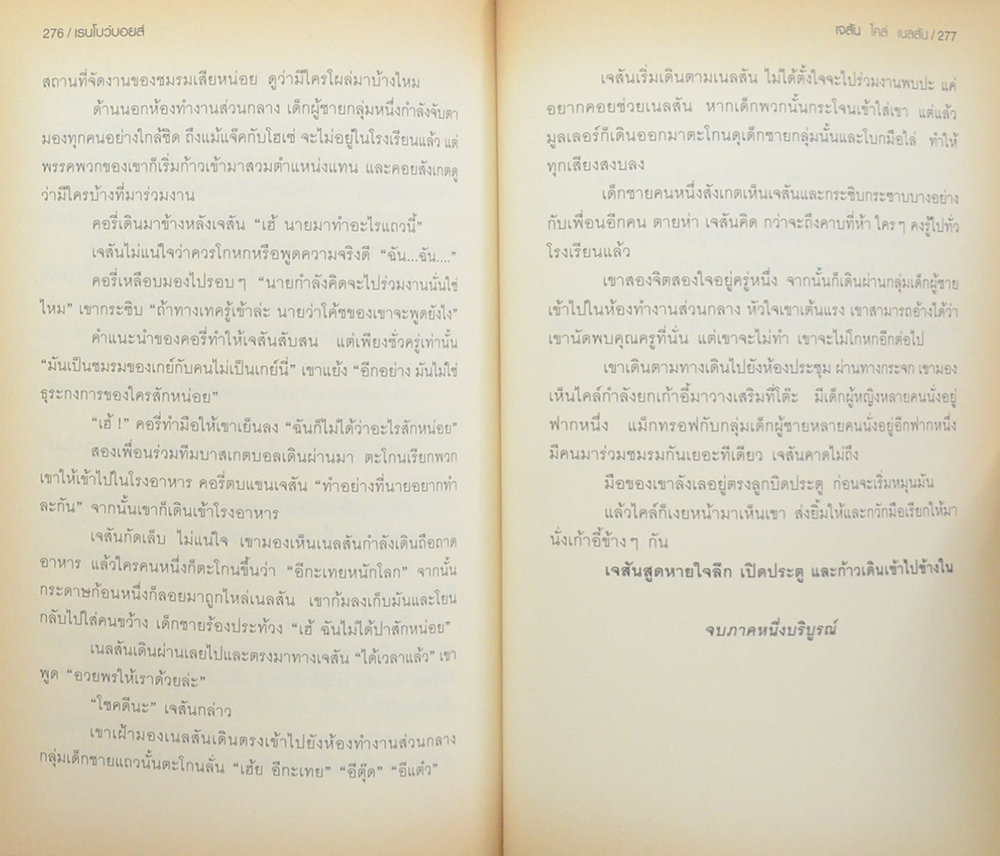 276 / เรนโบว์บอยส์
สถานที่จัดงานของชมรมเสียหน่อย ดูว่ามีใครโผล่มาบ้างไหม
ด้านนอกห้องทำงานส่วนกลาง เด็กผู้ชายกลุ่มหนึ่งกำลังจับตา
มองทุกคนอย่างใกล้ชิด ถึงแม้แจ๊คกับโฮเซ่ จะไม่อยู่ในโรงเรียนแล้ว แต่
พรรคพวกของเขาก็เริ่มก้าวเข้ามาสวมตำแหน่งแทน และคอยสังเกตดู
ว่ามีใครบ้างที่มาร่วมงาน
คอรี่เดินมาข้างหลังเจสัน “เฮ้ นายมาทำอะไรแถวนี้”
เจสันไม่แน่ใจว่าควรโกหกหรือพูดความจริงดี “ฉัน...ฉัน....”
คอรี่เหลือบมองไปรอบๆ “นายกำลังคิดจะไปร่วมงานนั่นใช่
ไหม” เขากระซิบ “ถ้าทางเทครู้เข้าล่ะ นายว่าโค้ชของเขาจะพูดยังไง”
คำแนะนำของคอรี่ทำให้เจสันสับสน แต่เพียงชั่วครู่เท่านั้น
“มันเป็นชมรมของเกย์กับคนไม่เป็นเกย์นี่” เขาแย้ง “อีกอย่าง มันไม่ใช่
ธุระกงการของใครสักหน่อย”
“เฮ้ !” คอรี่ทำมือให้เขาเย็นลง “ฉันก็ไม่ได้ว่าอะไรสักหน่อย”
สองเพื่อนร่วมทีมบาสเกตบอลเดินผ่านมา ตะโกนเรียกพวก
เขาให้เข้าไปในโรงอาหาร คอรี่ตบแขนเจสัน “ทำอย่างที่นายอยากทำ
ละกัน” จากนั้นเขาก็เดินเข้าโรงอาหาร
เจสันกัดเล็บ ไม่แน่ใจ เขามองเห็นเนลสันกำลังเดินถือถาด
อาหาร แล้วใครคนหนึ่งก็ตะโกนขึ้นว่า “อีกะเทยหนักโลก” จากนั้น
กระดาษก้อนหนึ่งก็ลอยมาถูกไหล่เนลสัน เขาก้มลงเก็บมันและโยน
กลับไปใส่คนขว้าง เด็กชายร้องประท้วง “เฮ้ ฉันไม่ได้ปาสักหน่อย”
เนลสันเดินผ่านเลยไปและตรงมาทางเจสัน “ได้เวลาแล้ว” เขา
พูด “อวยพรให้เราด้วยล่ะ”
“โชคดีนะ” เจสันกล่าว
เขาเฝ้ามองเนลสันเดินตรงเข้าไปยังห้องทำงานส่วนกลาง
กลุ่มเด็กชายแถวนั้นตะโกนลั่น “เฮ้ย อีกะเทย” “อีตุ๊ด” “อีแต๋ว”
เจสัน ไคล์ เนลสัน / 277
เจสันเริ่มเดินตามเนลสัน ไม่ได้ตั้งใจจะไปร่วมงานพบปะ แค่
อยากคอยช่วยเนลสัน หากเด็กพวกนั้นกระโจนเข้าใส่เขา แต่แล้ว
มูลเลอร์ก็เดินออกมาตะโกนดุเด็กชายกลุ่มนั้นและโบกมือไล่ ทำให้
ทุกเสียงสงบลง
เด็กชายคนหนึ่งสังเกตเห็นเจสันและกระซิบกระซาบบางอย่าง
กับเพื่อนอีกคน ตายห่า เจสันคิด กว่าจะถึงคาบที่ห้า ใครๆ คงรู้ไปทั่ว
โรงเรียนแล้ว
เขาสองจิตสองใจอยู่ครู่หนึ่ง จากนั้นก็เดินผ่านกลุ่มเด็กผู้ชาย
เข้าไปในห้องทำงานส่วนกลาง หัวใจเขาเต้นแรง เขาสามารถอ้างได้ว่า
เขานัดพบคุณครูที่นั่น แต่เขาจะไม่ทำ เขาจะไม่โกหกอีกต่อไป
เขาเดินตามทางเดินไปยังห้องประชุม ผ่านทางกระจก เขามอง
เห็นไคล์กำลังยกเก้าอี้มาวางเสริมที่โต๊ะ มีเด็กผู้หญิงหลายคนนั่งอยู่
ฟากหนึ่ง แม็กทรอฟกับกลุ่มเด็กผู้ชายหลายคนนั่งอยู่อีกฟากหนึ่ง
มีคนมาร่วมชมรมกันเยอะทีเดียว เจสันคาดไม่ถึง
มือของเขาลังเลอยู่ตรงลูกบิดประตู ก่อนจะเริ่มหมุนมัน
แล้วไคล์ก็เงยหน้ามาเห็นเขา ส่งยิ้มให้และกวักมือเรียกให้มา
นั่งเก้าอี้ข้างๆ กัน
เจสันสูดหายใจลึก เปิดประตู และก้าวเดินเข้าไปข้างใน
จบภาคหนึ่งบริบูรณ์